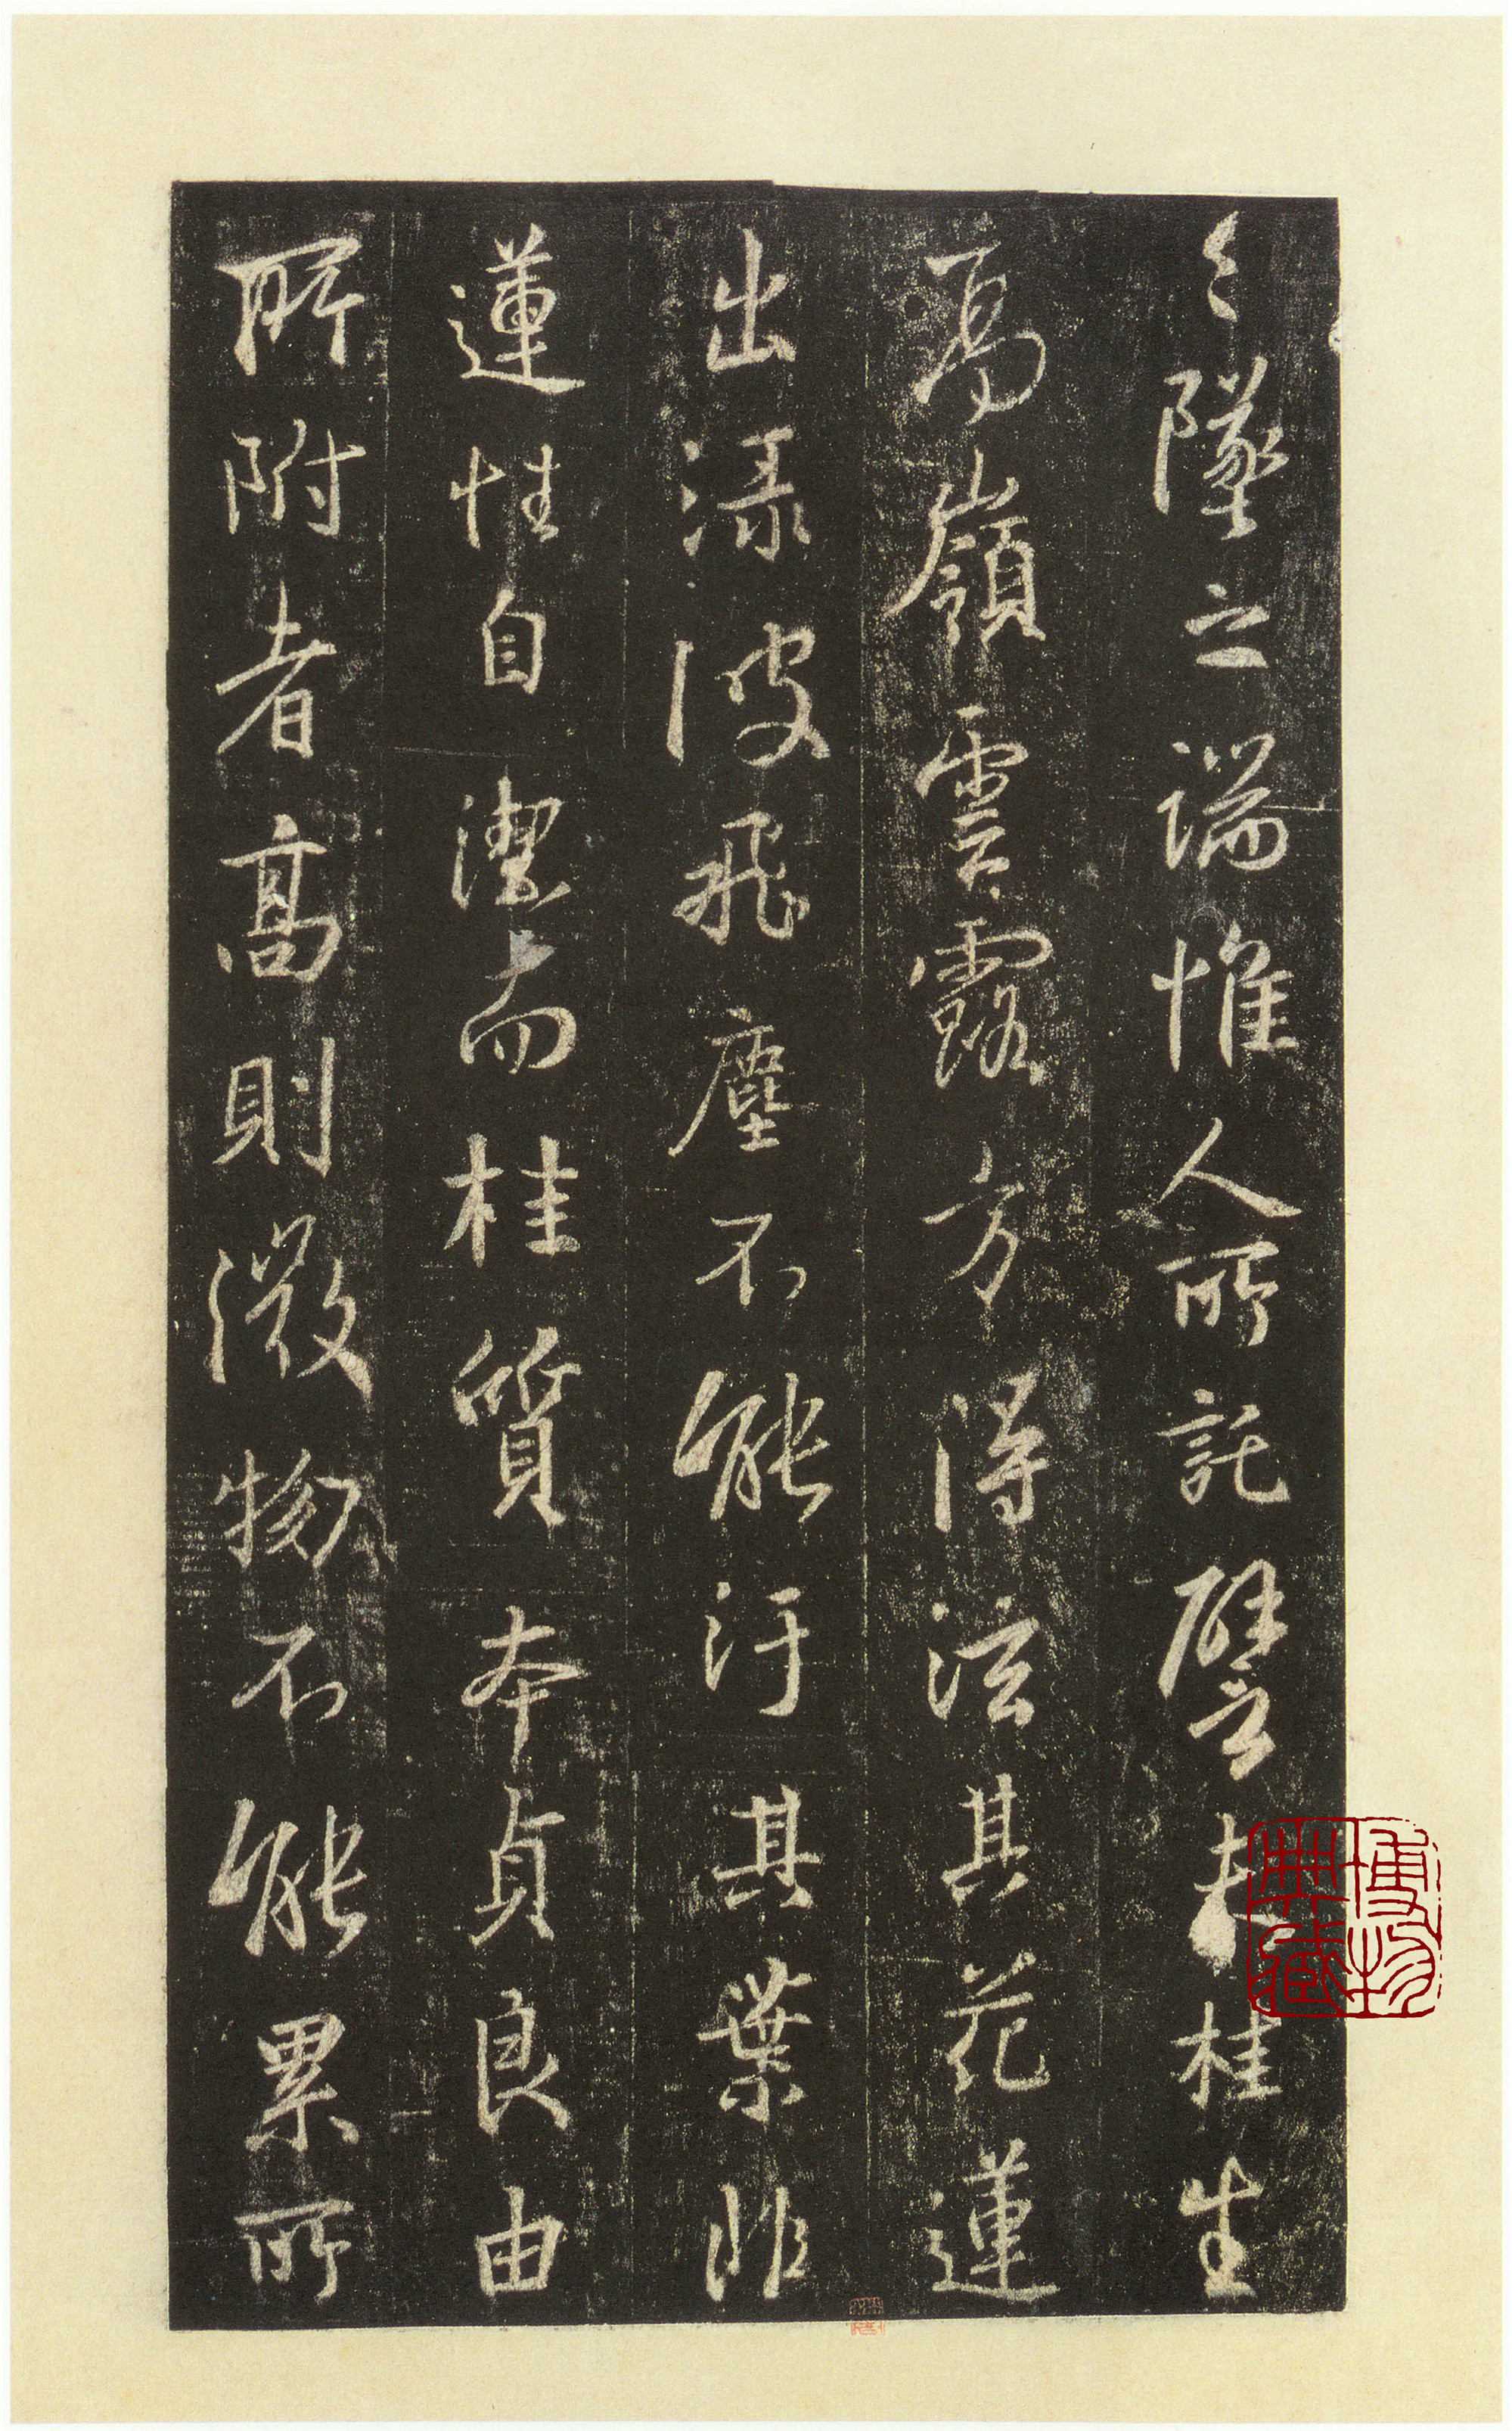 々墜之端惟人所託譬夫桂生
高嶺雲露方得泫其花蓮
出淥波飛塵不能汙其葉非
蓮性自潔而桂質本貞良由
所附者高則微物不能累所
博物
典藏